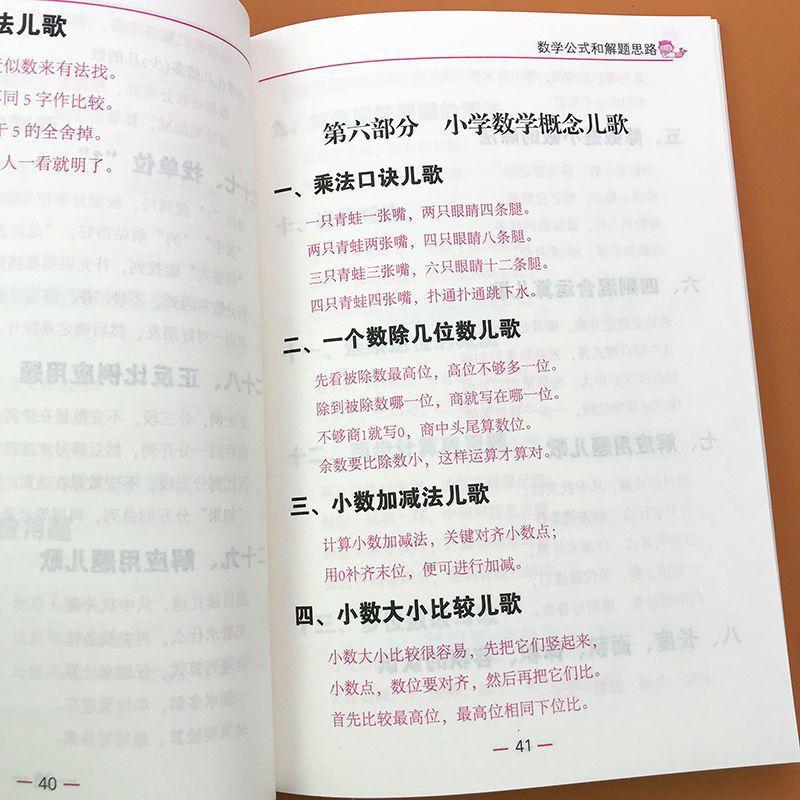 法儿歌
似数来有法找。
同5字作比较。
于5的全舍掉。
人一看就明了。
40
数学公式和解题思路
第六部分 小学数学概念儿歌
一、乘法口诀儿歌
一只青蛙一张嘴，两只眼睛四条腿。
两只青蛙两张嘴，四只眼睛八条腿。
三只青蛙三张嘴，六只眼睛十二条腿。
四只青蛙四张嘴，扑通扑通跳下水。
二、一个数除几位数儿歌
先看被除数最高位，高位不够多一位。
除到被除数哪一位，商就写在哪一位。
不够商1就写0，商中头尾算数位。
余数要比除数小，这样运算才算对。
三、小数加减法儿歌
计算小数加减法，关键对齐小数点；
用0补齐末位，便可进行加减。
四、小数大小比较儿歌
小数大小比较很容易，先把它们竖起来，
小数点，数位要对齐，然后再把它们比。
首先比较最高位，最高位相同下位比。
41